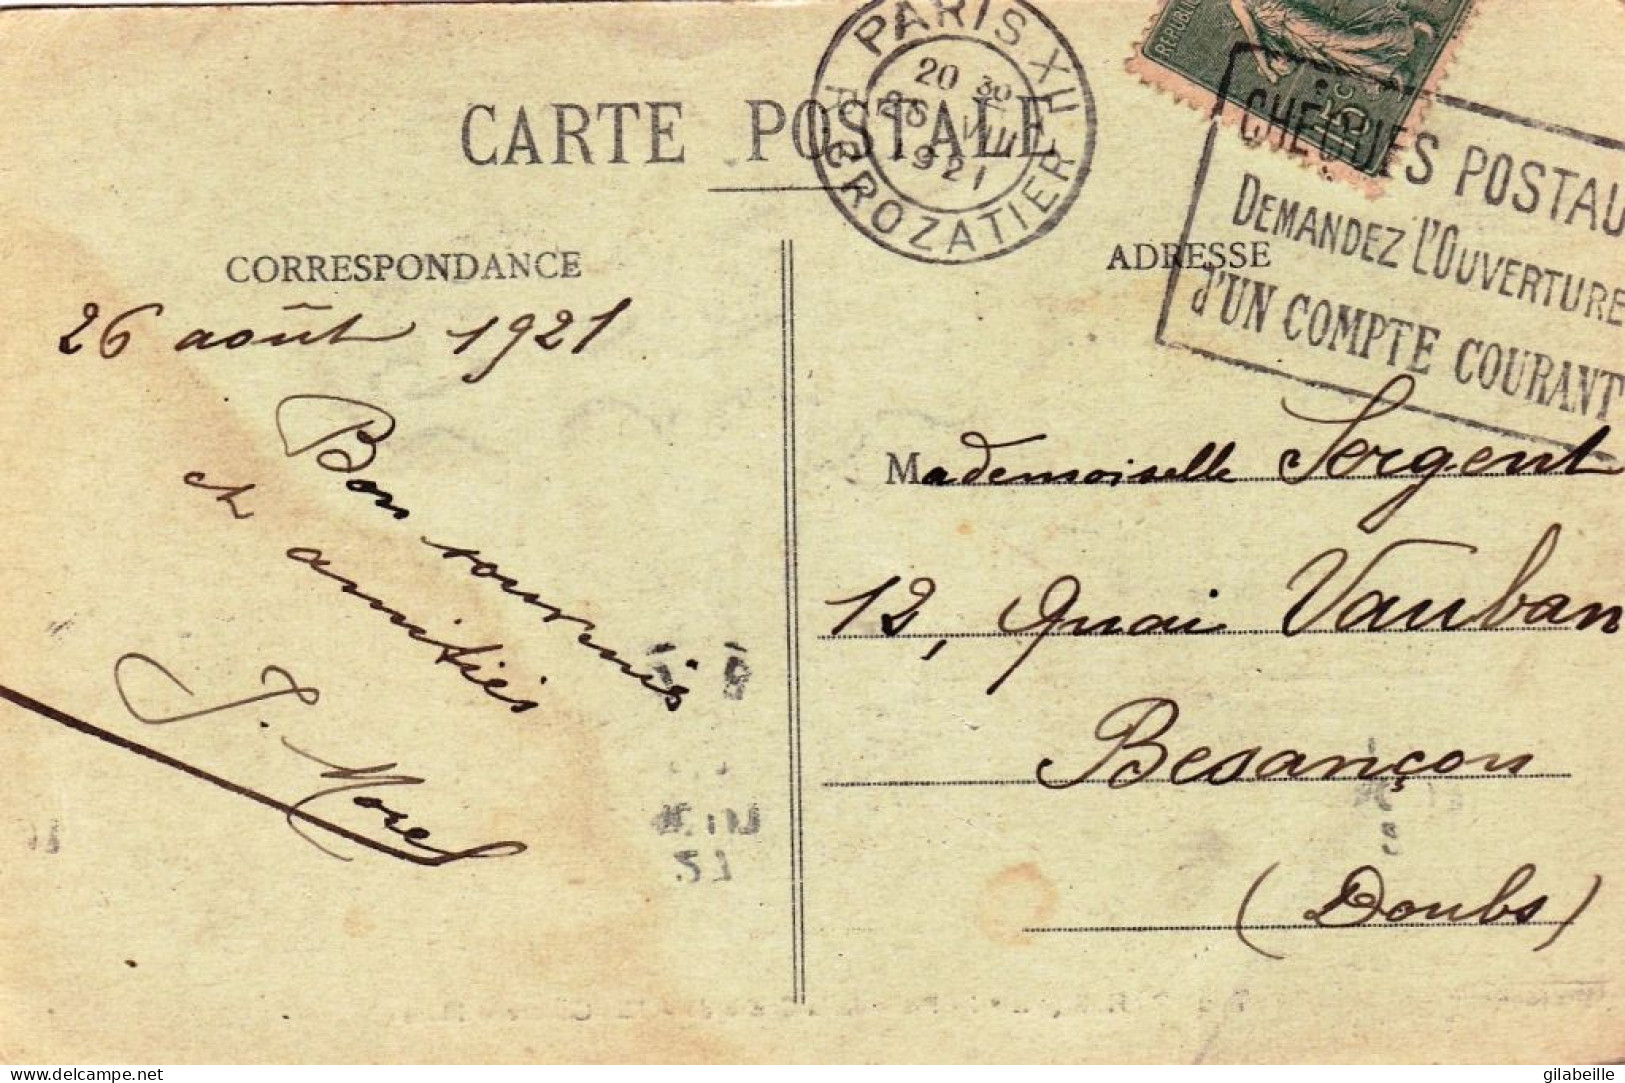 PARIS XII
20 30
26 VIII
1921
R. CROZATIER
CHÈQUES POSTAU
DEMANDEZ L'OUVERTURE
d'UN COMPTE COURANT
CARTE POSTALE
CORRESPONDANCE
26 août 1921
Bon souvenir
et amitiés
J. Morel
ADRESSE
Mademoiselle Sergent
12, Quai Vauban
Besançon
(Doubs)
delcampe.net
gilabeille